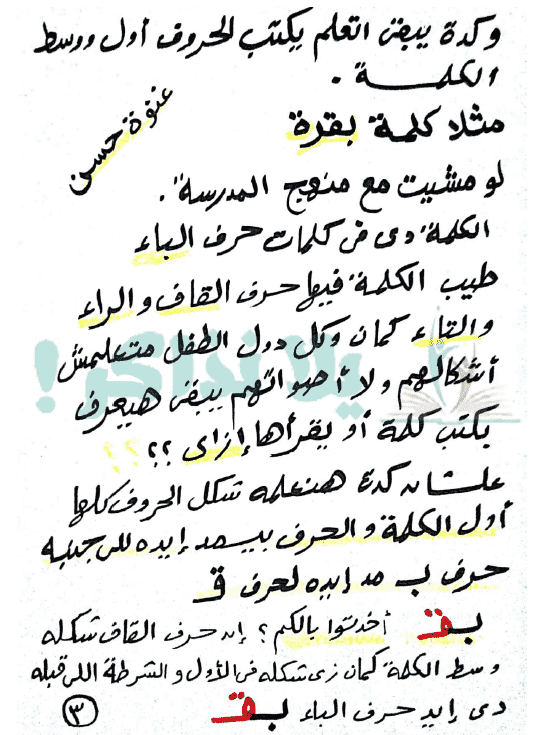 وكدة يبقى اتعلم يكتب الحروف أول ووسط
الكلمة .
عنوة حسن
مثلا كلمة بقرة
لو مشيت مع منهج المدرسة .
الكلمة دى فى كلمات حرف الباء
طيب الكلمة فيها حرف القاف والراء
والتاء كمان وكل دول الطفل متعلمش
أشكالهم ولا أصواتهم يبقى هيعرف
يكتب كلمة أو يقرأها إزاى ؟؟
يلا نذاكر!
علشان كدة هنعلمه شكل الحروف كلها
أول الكلمة والحرف بيمد إيده للى جنبه
حرف بـ مد إيده لحرف قـ
بـقـ أخدتوا بالكم ؟ إن حرف القاف شكله
وسط الكلمة كمان زى شكله فى الأول و الشرطة اللى قبله
دى إيد حرف الباء بـقـ
٣